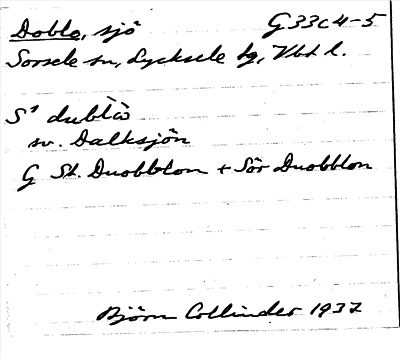 Doblo, sjö G33c4-5
Sorsele sn, Lycksele tg, Vbt l.
S¹ dublò
sv. Dalksjön
G St. Duobblon + Sör Duobblon
Björn Collinder 1937